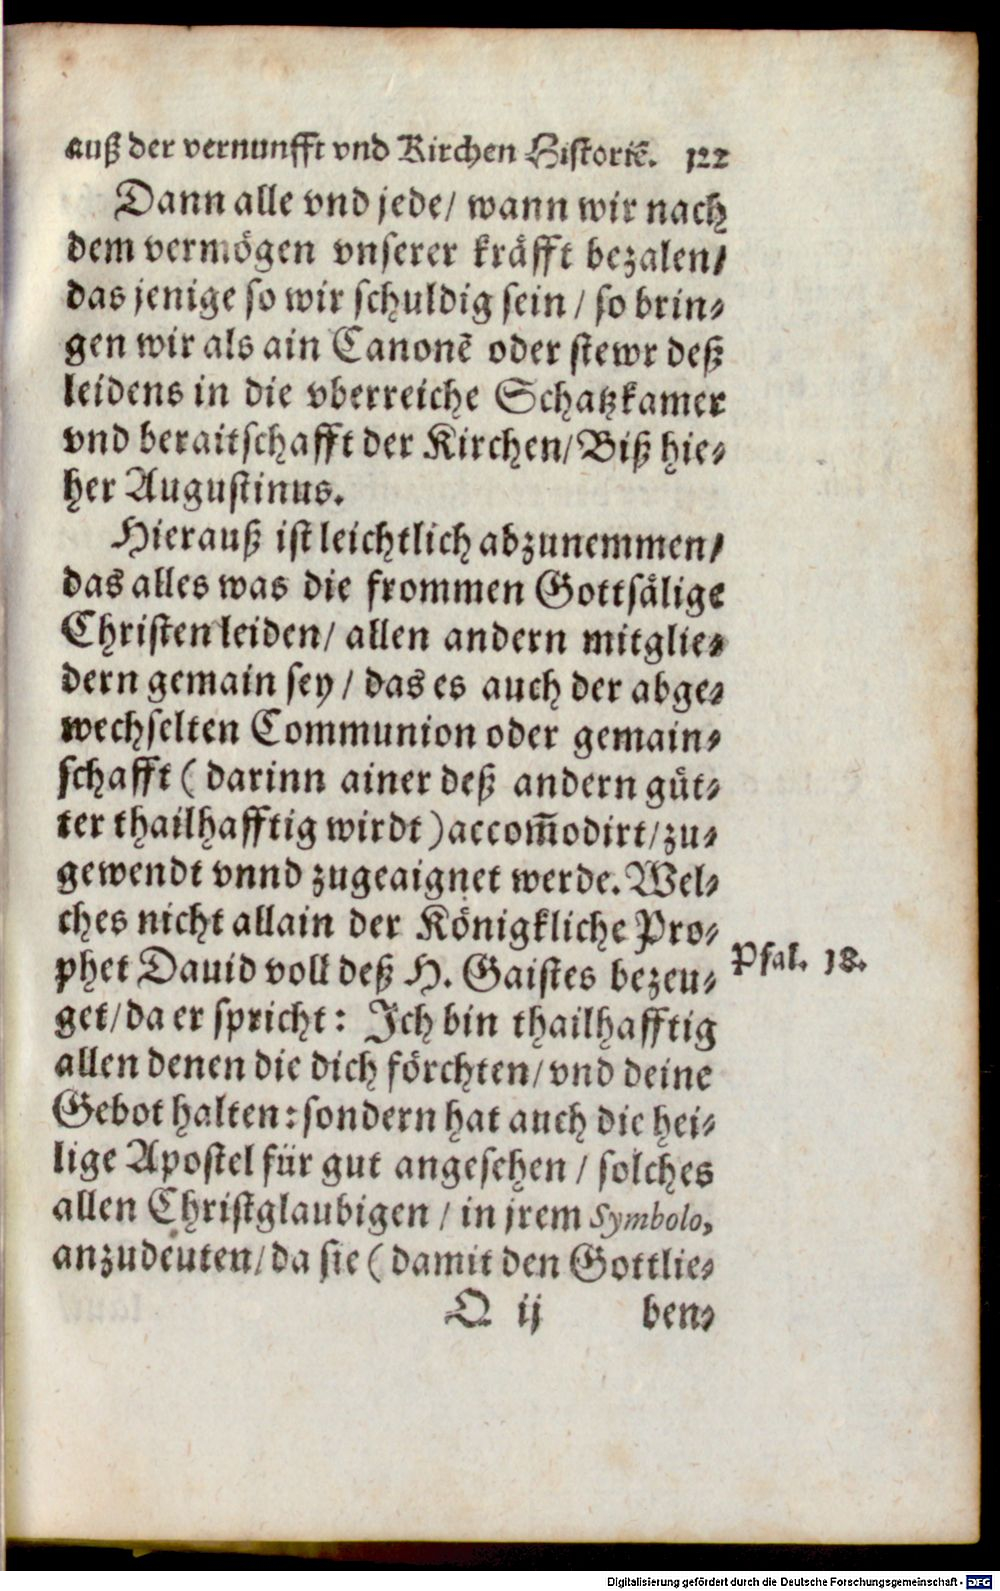 auß der vernunfft vnd Kirchen Historiẽ. 122
Dann alle vnd jede/ wann wir nach
dem vermögen vnserer kräfft bezalen/
das jenige so wir schuldig sein / so brin-
gen wir als ain Canonẽ oder stewr deß
leidens in die vberreiche Schatzkamer
vnd beraitschafft der Kirchen/ Biß hie-
her Augustinus.
Hierauß ist leichtlich abzunemmen/
das alles was die frommen Gottsälige
Christen leiden/ allen andern mitglie-
dern gemain sey / das es auch der abge-
wechselten Communion oder gemain-
schafft ( darinn ainer deß andern güt-
ter thailhafftig wirdt ) accom̃odirt/ zu-
gewendt vnnd zugeaignet werde. Wel-
ches nicht allain der Königkliche Pro-
phet Dauid voll deß H. Gaistes bezeu-
Psal. 18.
get/ da er spricht: Ich bin thailhafftig
allen denen die dich förchten/ vnd deine
Gebot halten: sondern hat auch die hei-
lige Apostel für gut angesehen / solches
allen Christglaubigen / in jrem Symbolo,
anzudeuten/ da sie ( damit den Gottlie-
Q ij ben-
Digitalisierung gefördert durch die Deutsche Forschungsgemeinschaft - DFG